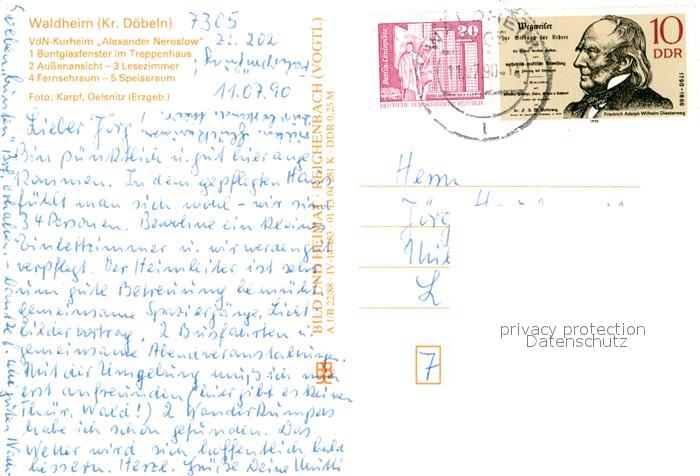 Waldheim (Kr. Döbeln)
7305
VdN-Kurheim „Alexander Neroslow"
Zi. 202
1 Buntglasfenster im Treppenhaus
2 Außenansicht – 3 Lesezimmer
4 Fernsehraum – 5 Speiseraum
11.07.90
Foto: Karpf, Oelsnitz (Erzgeb.)
Lieber Jörg!
Bin pünktlich u. gut hier ange-
kommen. In dem gepflegten Haus
fühlt man sich wohl – wir sind
34 Personen. Bewohne ein kleines
Einbettzimmer u. wir werden gut
verpflegt. Der Heimleiter ist sehr
um gute Betreuung bemüht,
gemeinsame Spaziergänge, Licht-
bildervortrag, 2 Busfahrten u.
gemeinsame Abendveranstaltungen.
Mit der Umgebung muß ich mich
erst anfreunden (hier gibt es keinen
Thür. Wald!) 2 Wanderkumpels
habe ich schon gefunden. Das
Wetter wird sich hoffentlich bald
bessern. Herzl. Grüße Deine Mutti
BILD UND HEIMAT REICHENBACH (VOGTL)
A 1/B 22/88 IV-14-483 K DDR 0,25 M
Berlin-Leninplatz
20
DEUTSCHE DEMOKRATISCHE REPUBLIK
Wegweiser
zur
Bildung für Lehrer
10
DDR
1790–1866
Friedrich Adolph Wilhelm Diesterweg
1990
Herrn
Jörg
7
privacy protection
Datenschutz